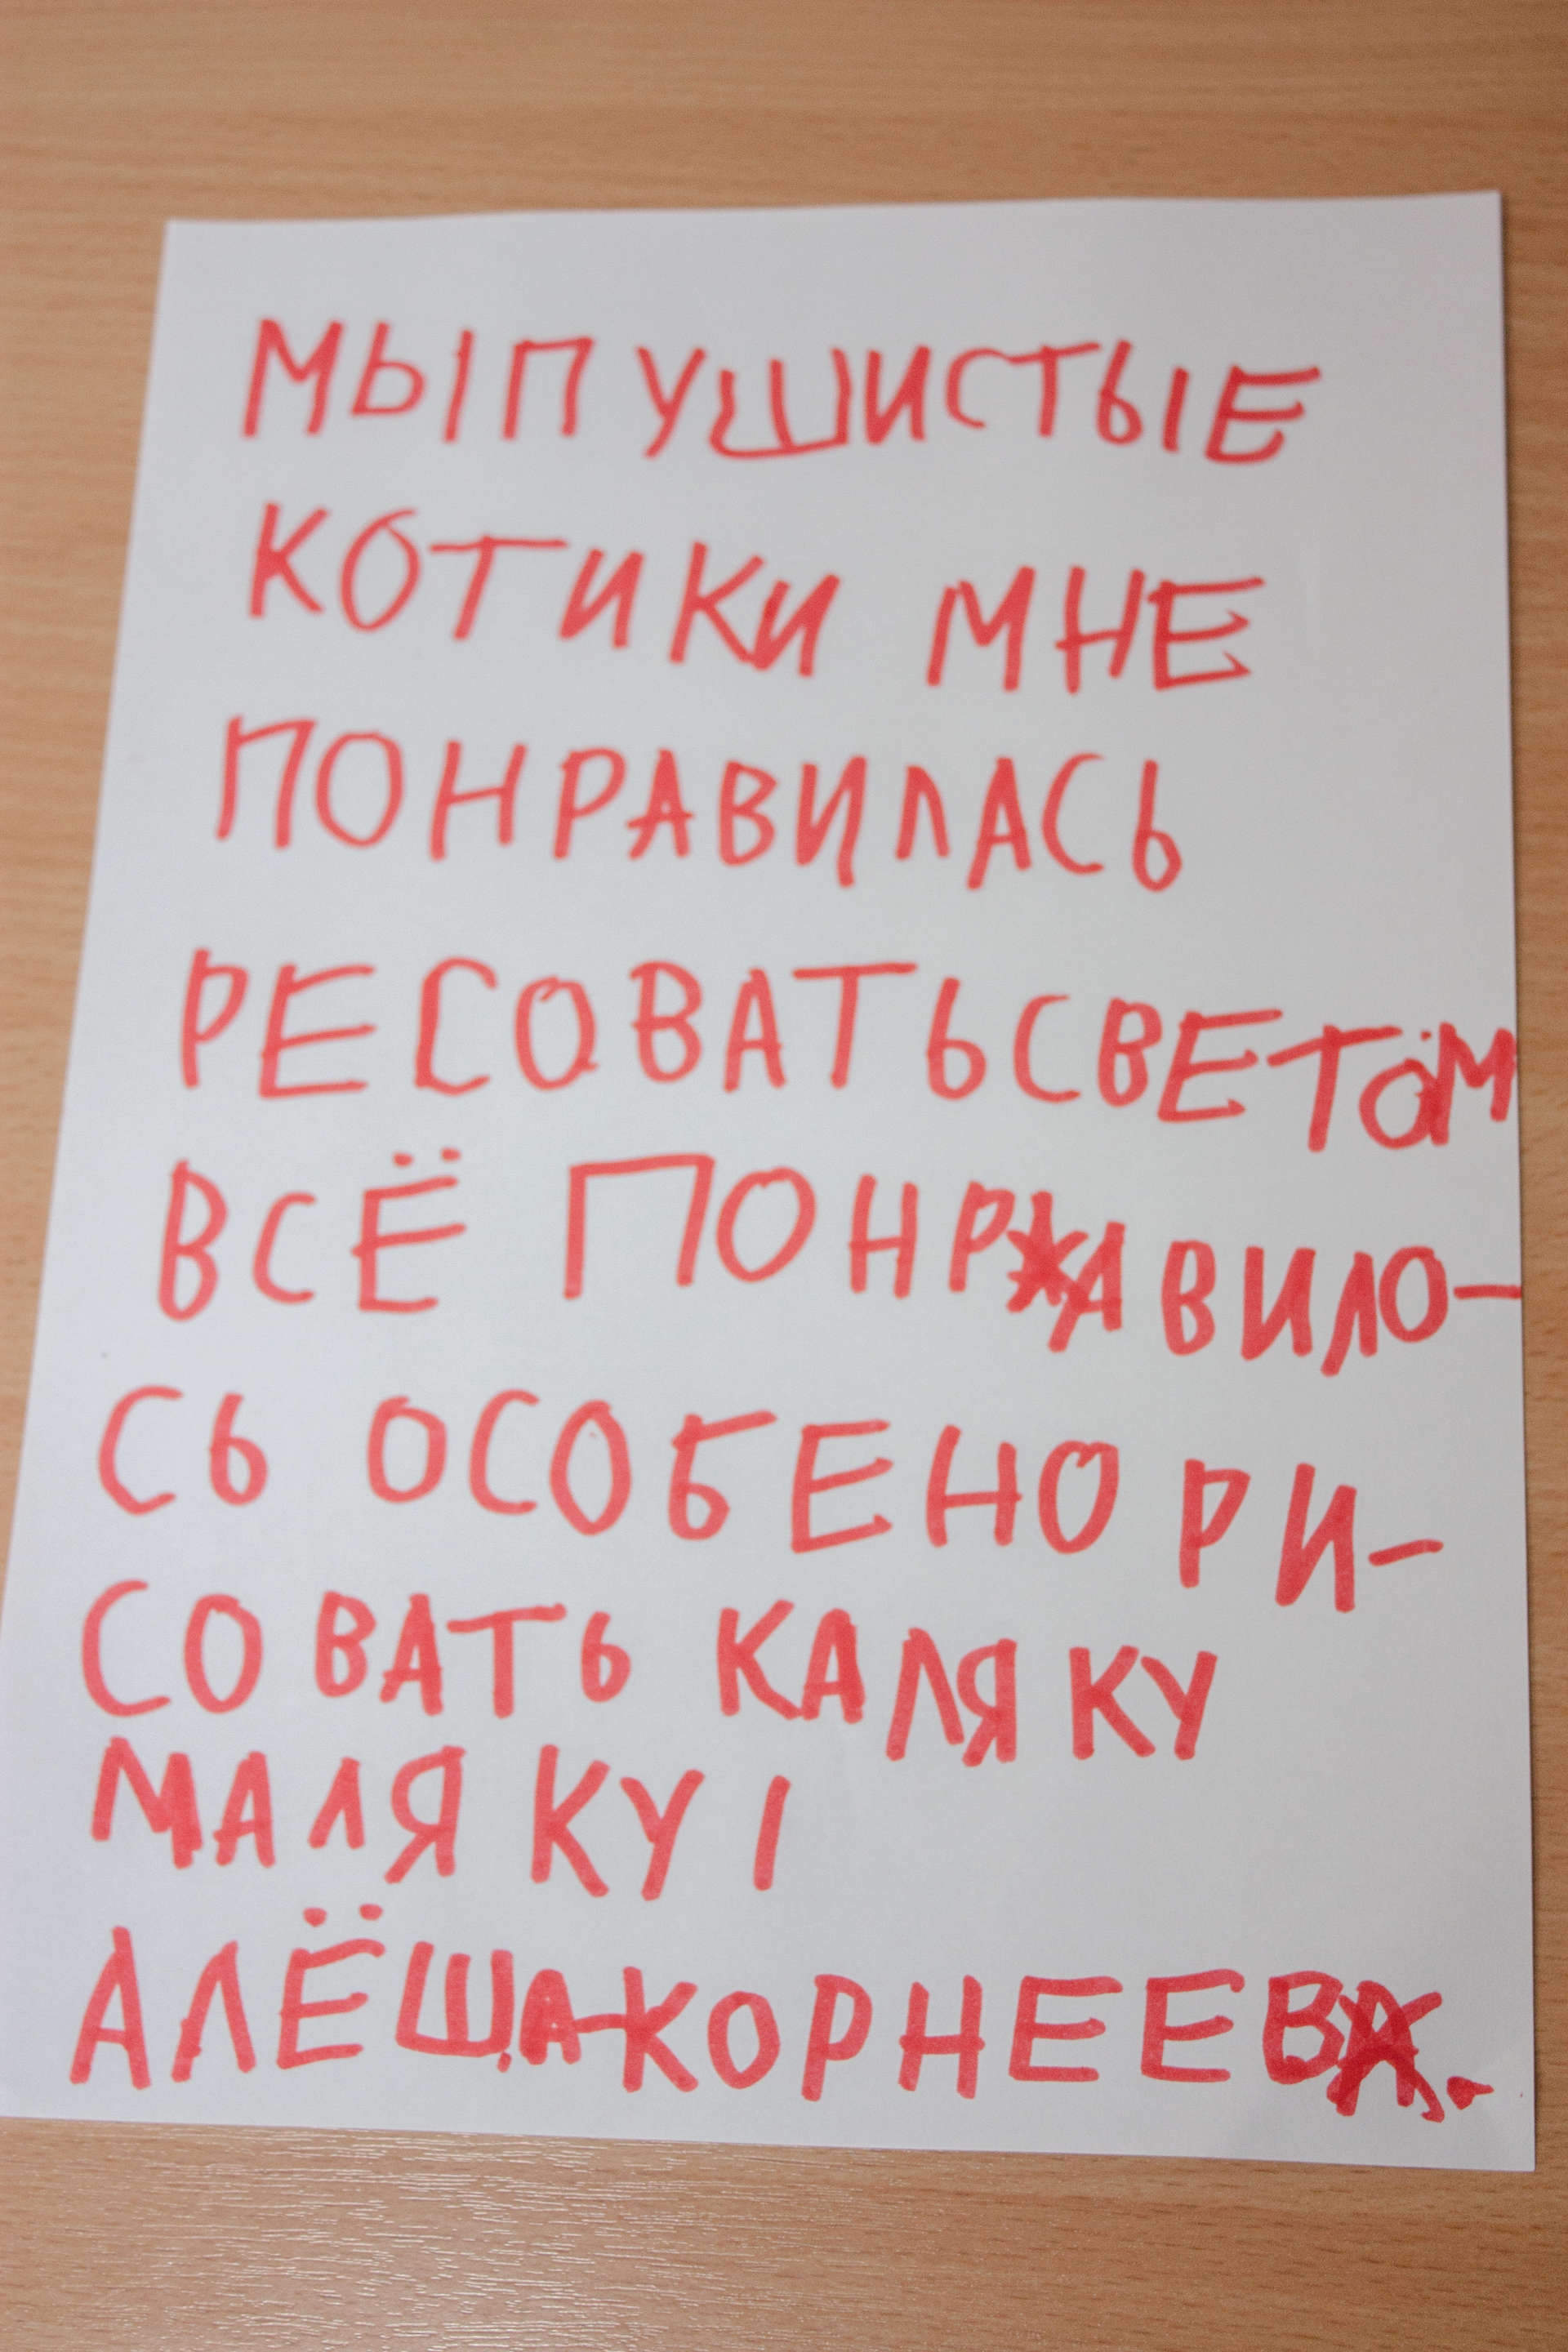 МЫ ПУШИСТЫЕ
КОТИКИ МНЕ
ПОНРАВИЛАСЬ
РЕСОВАТЬ СВЕТОМ
ВСЁ ПОНРАВИЛО-
СЬ ОСОБЕНО РИ-
СОВАТЬ КАЛЯКУ
МАЛЯКУ !
АЛЁША-КОРНЕЕВ.